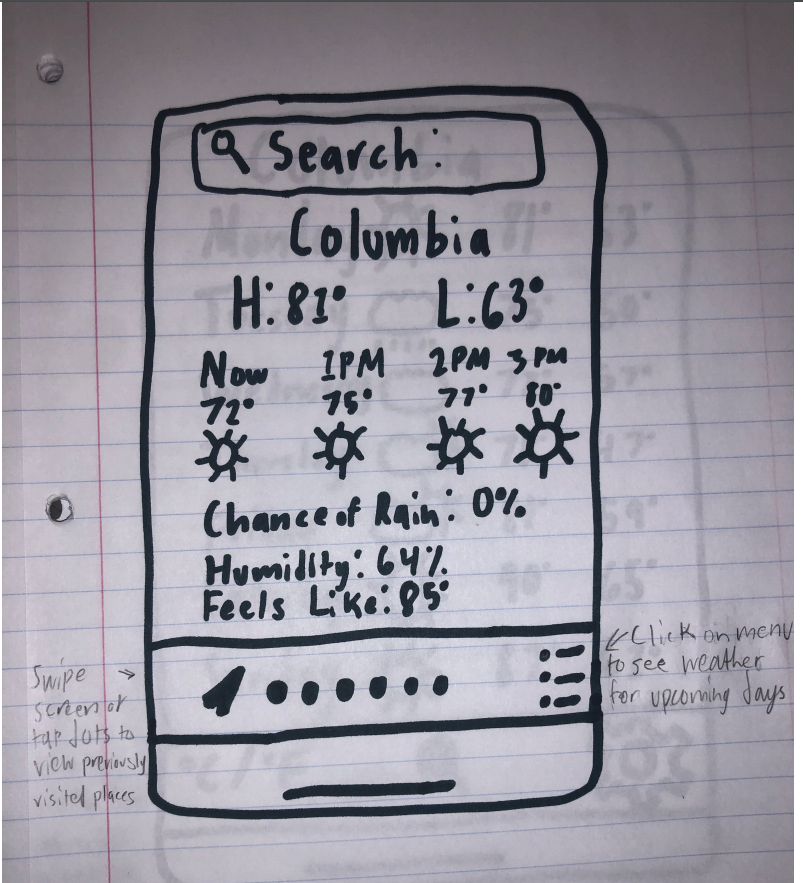 Search:
Columbia
H:81° L:63°
Now 1PM 2PM 3PM
72° 75° 77° 80°
Chance of Rain: 0%
Humidity: 64%
Feels Like: 85°
Swipe →
screen or
tap dots to
view previously
visited places
↙Click on menu
to see weather
for upcoming days